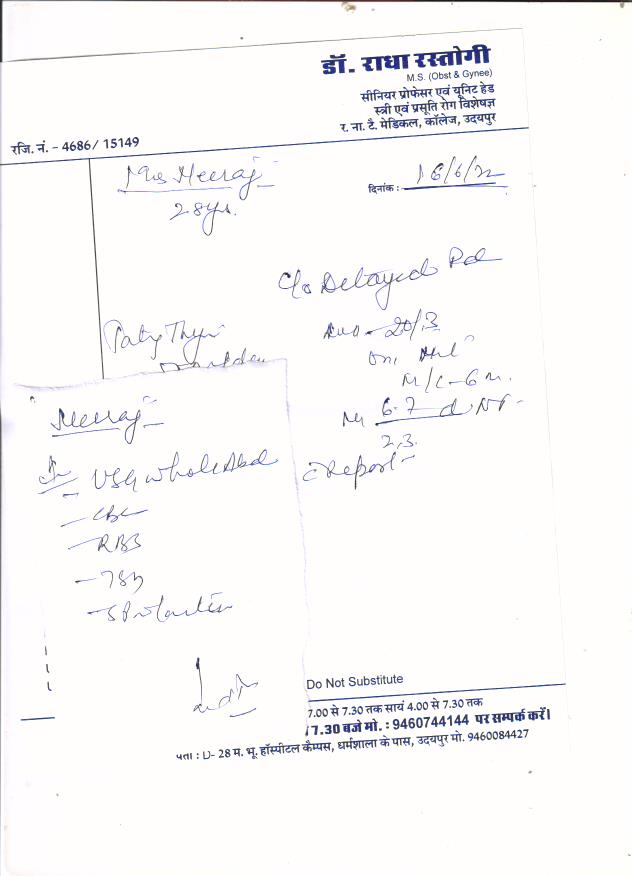 डॉ. राधा रस्तोगी
M.S. (Obst & Gynec)
सीनियर प्रोफेसर एवं यूनिट हेड
स्त्री एवं प्रसूति रोग विशेषज्ञ
र. ना. टै. मेडिकल, कॉलेज, उदयपुर
रजि. नं. - 4686/ 15149
Mrs Heeraj
28yrs.
दिनांक : 16/6/22
C/o Delayed Pd
20/3
M/C - 6 m.
6-7 d
2,3.
c Report
Heeraj
USG Whole Abd
- CBC
- RBS
- TSH
- S Prolactin
Do Not Substitute
7.00 से 7.30 तक सायं 4.00 से 7.30 तक
7.30 बजे मो. : 9460744144 पर सम्पर्क करें।
पता : D- 28 म. भू. हॉस्पीटल कैम्पस, धर्मशाला के पास, उदयपुर मो. 9460084427